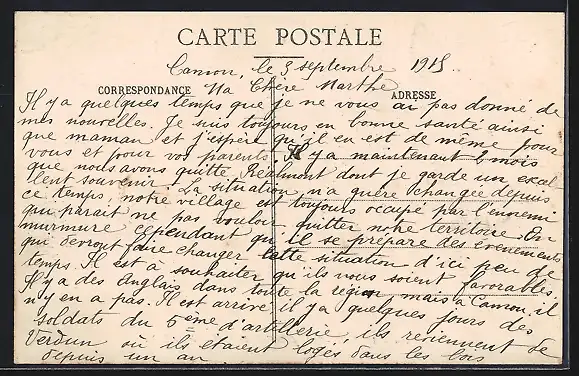 CARTE POSTALE
Camon, le 3 septembre 1915.
CORRESPONDANCE
Ma Chère Marthe
ADRESSE
Il y a quelques temps que je ne vous ai pas donné de
mes nouvelles. Je suis toujours en bonne santé ainsi
que maman et j'espère qu'il en est de même pour
vous et pour vos parents. Il y a maintenant 2 mois
que nous avons quitté Réalmont dont je garde un excel
lent souvenir. La situation n'a guère changée depuis
ce temps, notre village est toujours occupé par l'ennemi
qui parait ne pas vouloir quitter notre territoire. On
murmure cependant qu'il se prépare des événements
qui devront faire changer cette situation d'ici peu de
temps. Il est à souhaiter qu'ils nous soient favorables.
Il y a des Anglais dans toute la région, mais à Camon, il
n'y en a pas. Il est arrivé il y a quelques jours des
soldats du 5ème d'artillerie, ils reviennent de
Verdun où ils étaient logés dans les bois
depuis un an